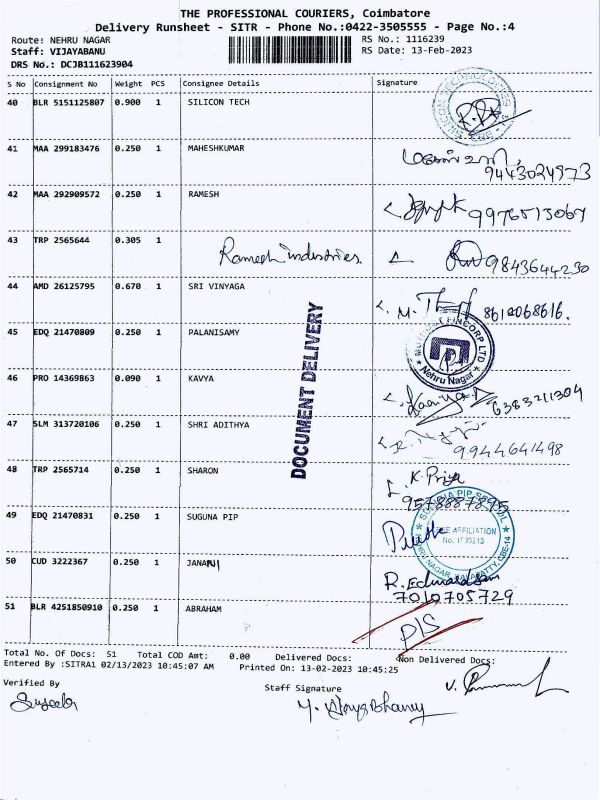 THE PROFESSIONAL COURIERS, Coimbatore
Delivery Runsheet - SITR - Phone No.:0422-3505555 - Page No.:4
Route: NEHRU NAGAR RS No.: 1116239
Staff: VIJAYABANU RS Date: 13-Feb-2023
DRS No.: DCJB111623904
S No Consignment No Weight PCS Consignee Details Signature
40 BLR 5151125807 0.900 1 SILICON TECH
41 MAA 299183476 0.250 1 MAHESHKUMAR
9443024973
42 MAA 292909572 0.250 1 RAMESH
9976513067
43 TRP 2565644 0.305 1 Ramesh industries. 9843644230
44 AMD 26125795 0.670 1 SRI VINYAGA
8614068616.
45 EDQ 21470809 0.250 1 PALANISAMY
FINCORP LTD
Nehru Nagar
46 PRO 14369863 0.090 1 KAVYA
6383211304
47 SLM 313720106 0.250 1 SHRI ADITHYA
9944641498
48 TRP 2565714 0.250 1 SHARON K. Priya
9578887895
49 EDQ 21470831 0.250 1 SUGUNA PIP
AFFILIATION
50 CUD 3222367 0.250 1 JANANI
R. Edwardsan
7010705729
51 BLR 4251850910 0.250 1 ABRAHAM
DIS
DOCUMENT DELIVERY
Total No. Of Docs: 51 Total COD Amt: 0.00 Delivered Docs: Non Delivered Docs:
Entered By :SITRA1 02/13/2023 10:45:07 AM Printed On: 13-02-2023 10:45:25
Verified By Staff Signature